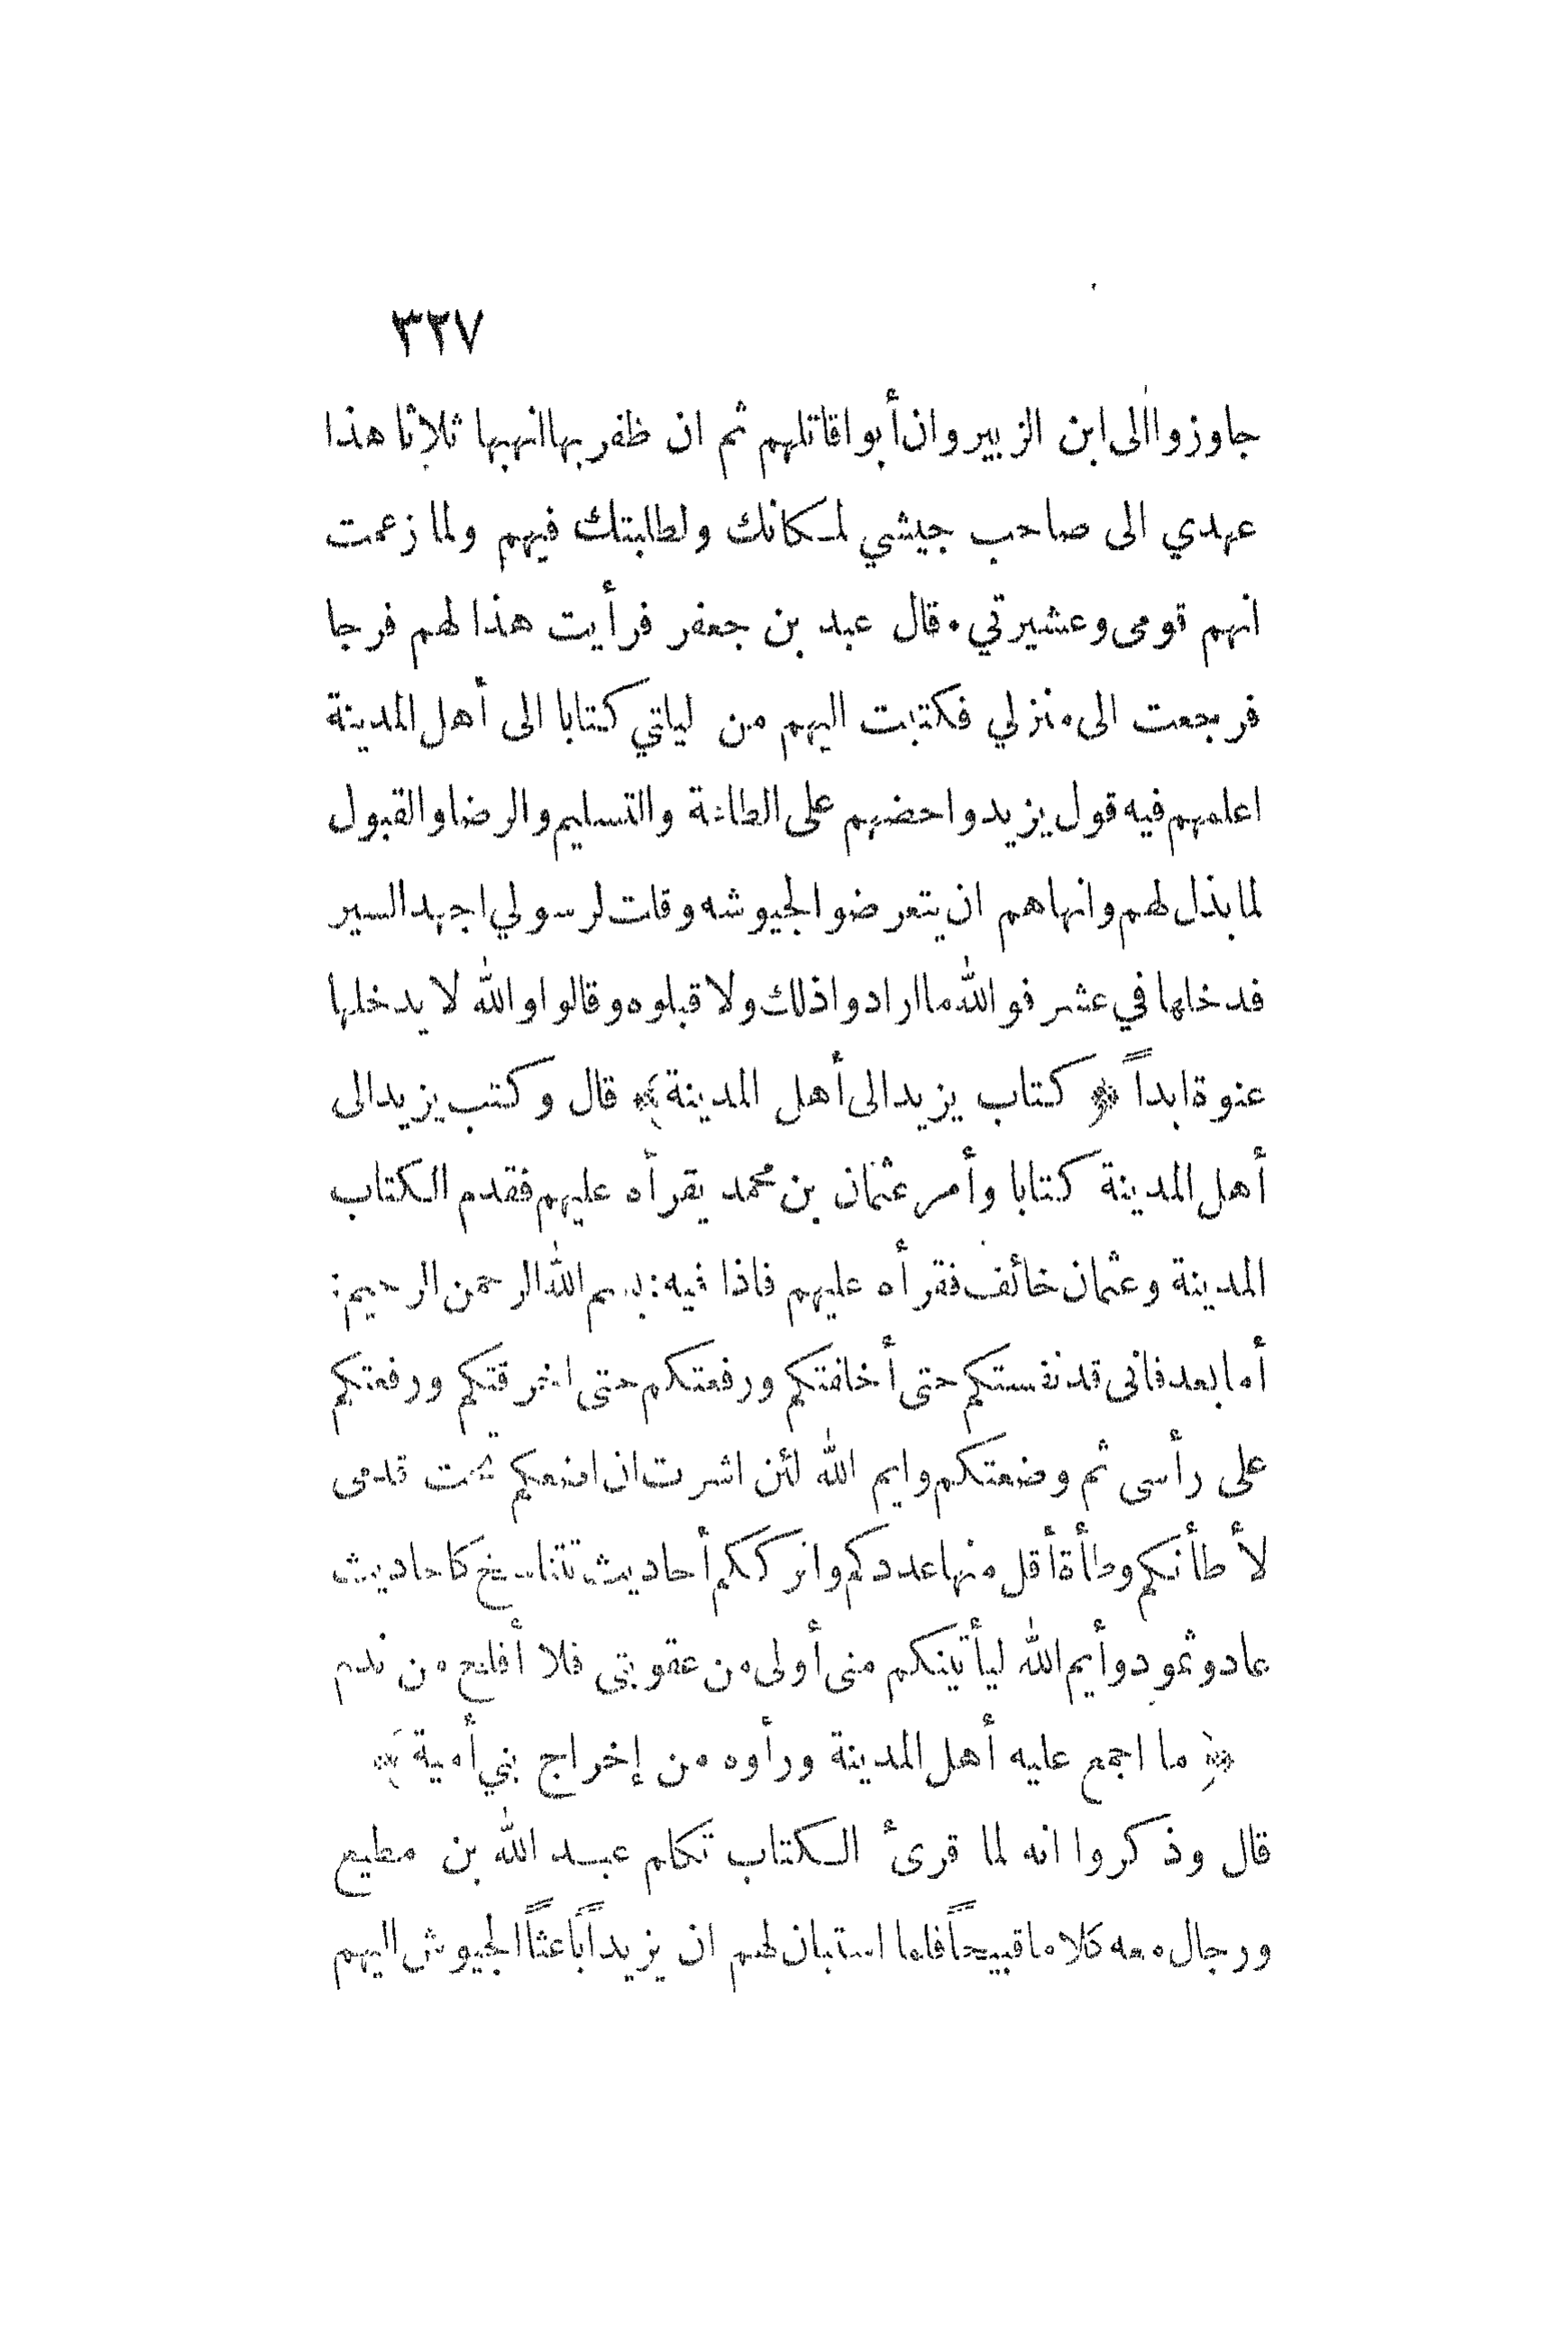 ٣٢٧
جاوزوا الى ابن الزبير وان أبوا قاتلهم ثم ان ظفر بها انهبها ثلاثا هذا
عهدي الى صاحب جيشي لمكانك ولطلبتك فيهم ولما زعمت
انهم قومى وعشيرتي . قال عبد بن جعفر فرأيت هذا لهم فرجا
فرجعت الى منزلي فكتبت اليهم من ليلتي كتابا الى أهل المدينة
اعلمهم فيه قول يزيد واحضهم على الطاعة والتسليم والرضا والقبول
لما بذل لهم وانهاهم ان يتعرضوا لجيوشه وقلت لرسولي اجهد السير
فدخلها في عشر فوالله ما ارادوا ذلك ولا قبلوه وقالوا والله لا يدخلها
عنوة ابداً ﴿ كتاب يزيد الى أهل المدينة ﴾ قال وكتب يزيد الى
أهل المدينة كتابا وأمر عثمان بن محمد يقرأه عليهم فقدم الكتاب
المدينة وعثمان خائف فقرأه عليهم فاذا فيه : بسم الله الرحمن الرحيم :
أما بعد فانى قد نفستكم حتى أخلفتكم ورفعتكم حتى اخرقتكم ورفعتكم
على رأسى ثم وضعتكم وايم الله لئن اشرت ان اضعكم تحت قدمى
لأطأنكم وطأة أقل منها عددكم واترككم أحاديث تتناسخ كاحاديث
عاد وثمود وأيم الله ليأتينكم منى أولى من عقوبتى فلا أفلح من ندم
﴿ ما اجمع عليه أهل المدينة ورأوه من إخراج بني أمية ﴾
قال وذكروا انه لما قرئ الكتاب تكلم عبد الله بن مطيع
ورجال معه كلاما قبيحاً فلما استبان لهم ان يزيداً باعثاً الجيوش اليهم